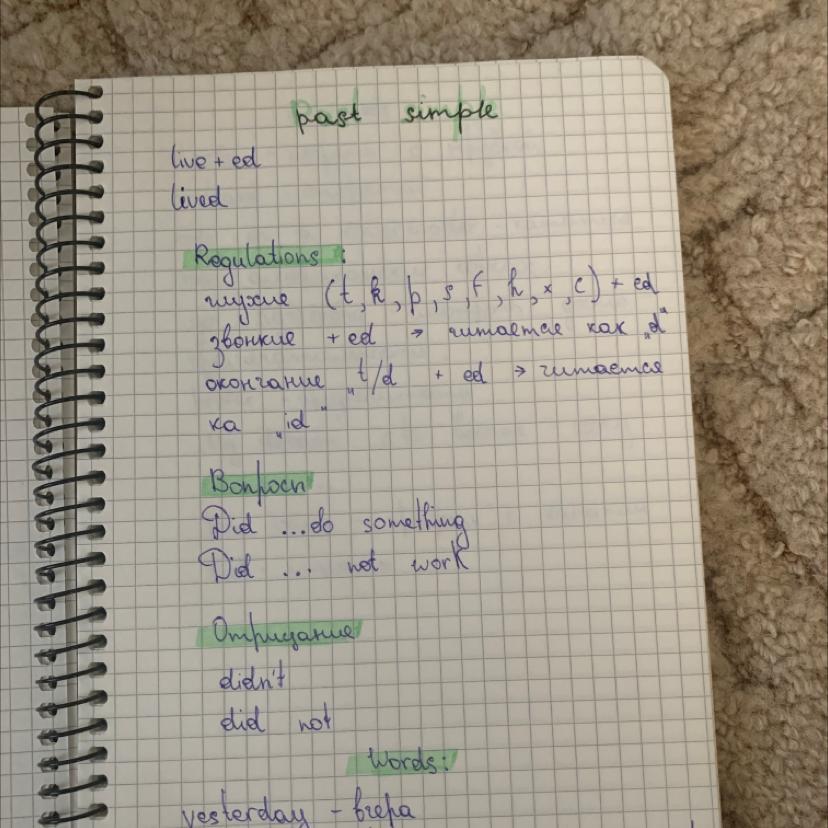 past simple
live + ed
lived
Regulations :
глухие (t, k, p, s, f, h, x, c) + ed
звонкие + ed → читается как „d"
окончание „t/d + ed → читается
ка „id"
Вопросы
Did ...do something
Did ... not work
Отрицание
didn't
did not
Words:
yesterday - вчера